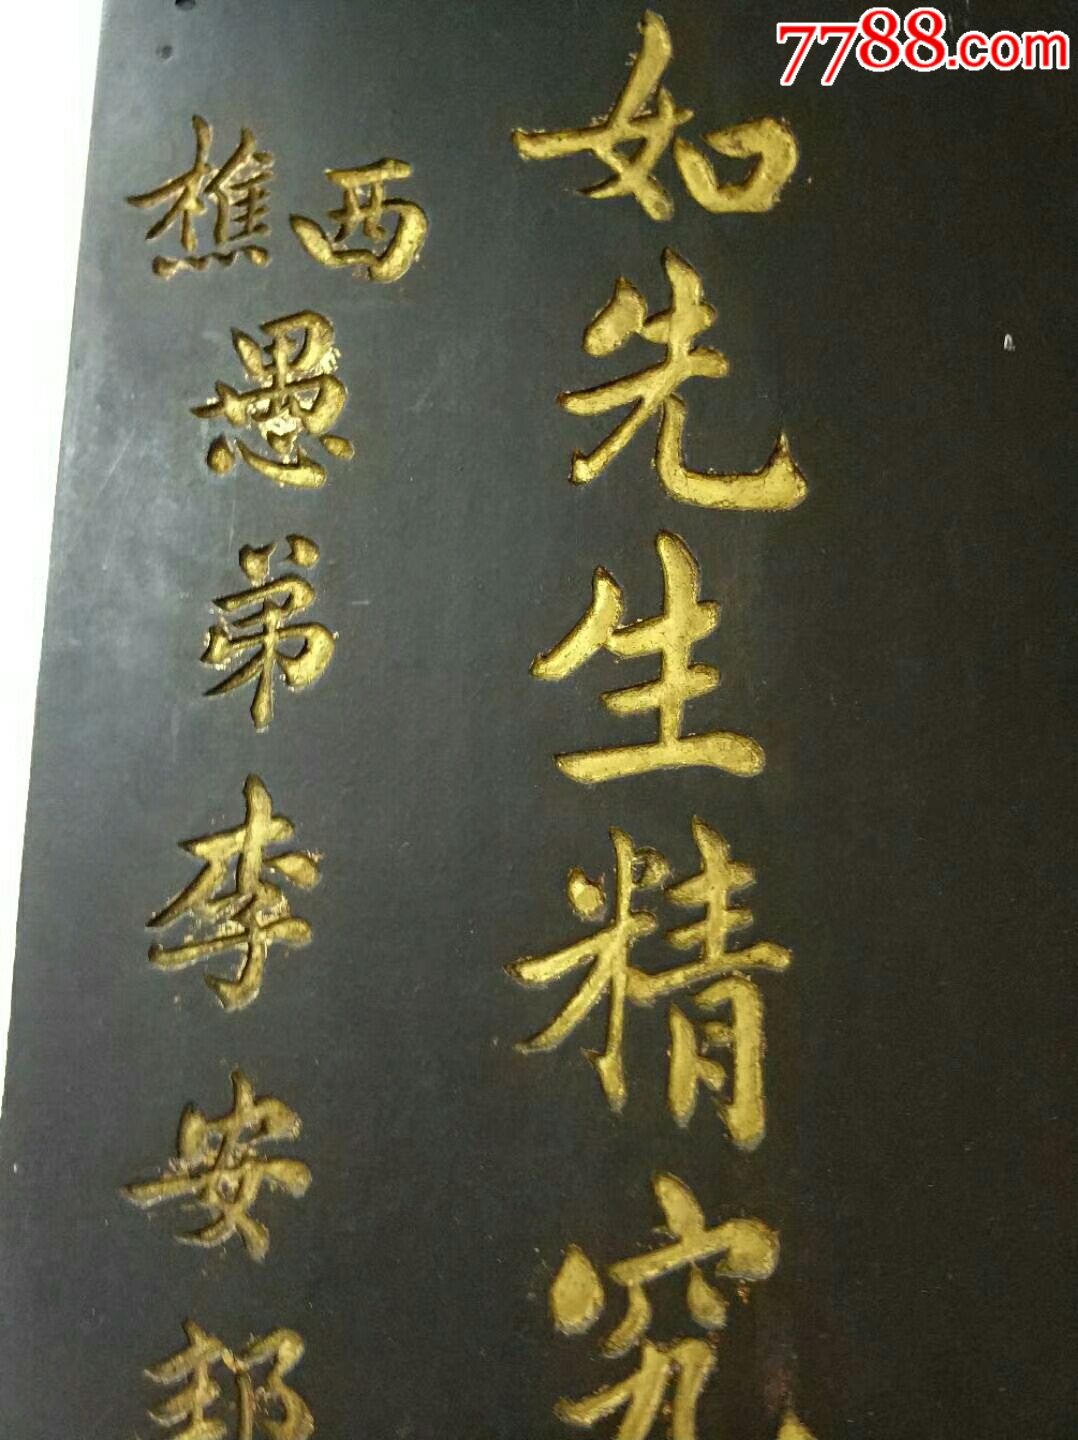 7788.com
如先生精究
西樵愚弟李安邦